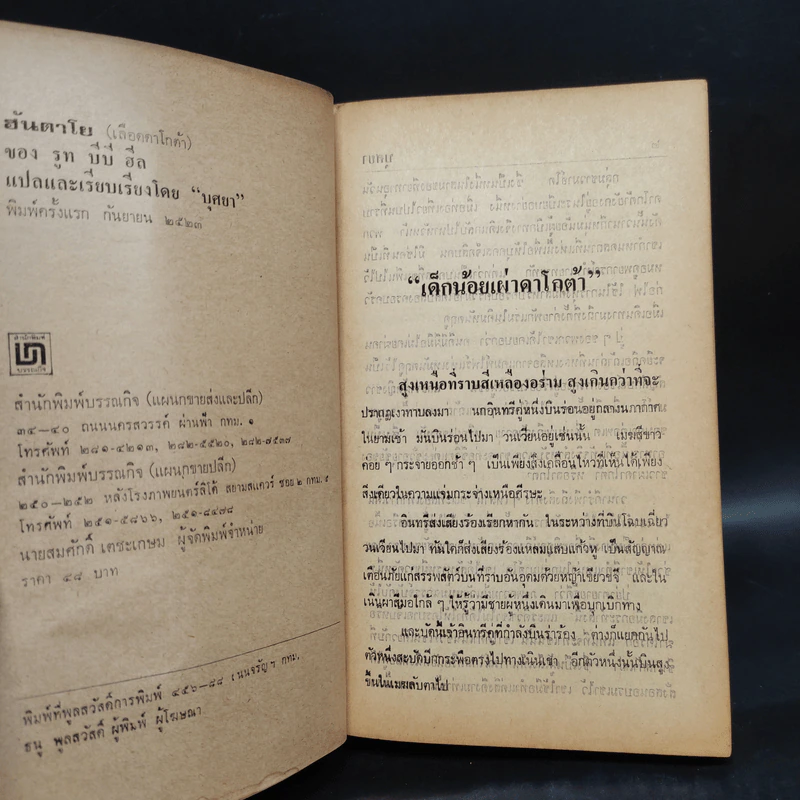 ฮันตาโย (เลือดดาโกต้า)
ของ รูท บีบี ฮีล
แปลและเรียบเรียงโดย “บุศยา”
พิมพ์ครั้งแรก กันยายน ๒๕๒๓
สำนักพิมพ์
บรรณกิจ
สำนักพิมพ์บรรณกิจ (แผนกขายส่งและปลีก)
๓๔—๔๐ ถนนนครสวรรค์ ผ่านฟ้า กทม. ๑
โทรศัพท์ ๒๘๑-๔๒๑๓, ๒๘๒-๕๕๒๐, ๒๘๒-๗๕๓๗
สำนักพิมพ์บรรณกิจ (แผนกขายปลีก)
๒๕๐—๒๕๒ หลังโรงภาพยนตร์ลิโด้ สยามสแควร์ ซอย ๒ กทม. ๕
โทรศัพท์ ๒๕๑-๕๘๖๖, ๒๕๑-๘๔๗๘
นายสมศักดิ์ เตชะเกษม ผู้จัดพิมพ์จำหน่าย
ราคา ๔๘ บาท
พิมพ์ที่พูลสวัสดิ์การพิมพ์ ๔๕๖-๘๘ กทม.
ธนู พูลสวัสดิ์ ผู้พิมพ์ ผู้โฆษณา
“เด็กน้อยเผ่าดาโกต้า”
สูงเหนือที่ราบสีเหลืองอร่าม สูงเกินกว่าที่จะ
ปรากฏเงาทาบลงมา นกอินทรีคู่หนึ่งบินร่อนอยู่กลางนภากาศ
ในยามเช้า มันบินร่อนไปมา วนเวียนอยู่เช่นนั้น เมฆสีขาว
ค่อย ๆ กระจายออกช้า ๆ เป็นเพียงสิ่งเคลื่อนไหวที่เห็นได้เพียง
สิ่งเดียวในความแจ่มกระจ่างเหนือศีรษะ
อินทรีส่งเสียงร้องเรียกหากัน ในระหว่างที่บินโฉบเฉี่ยว
วนเวียนไปมา ทันใดก็ส่งเสียงร้องแหลมแสบแก้วหู เป็นสัญญาณ
เตือนภัยแก่สรรพสัตว์บนที่ราบอันอุดมด้วยหญ้าเขียวขจี และใน
เนินผาสีมอใกล้ ๆ ให้รู้ว่ามีชายผู้หนึ่งเดินมาเพื่อบุกเบิกทาง
และบัดนี้เจ้าอินทรีคู่ที่กำลังบินร่าร้อง ต่างก็แยกกันไป
ตัวหนึ่งสะบัดปีกกระพือตรงไปทางเนินเขา อีกตัวหนึ่งนั้นบินสูง
ขึ้นในเมฆลับตาไป